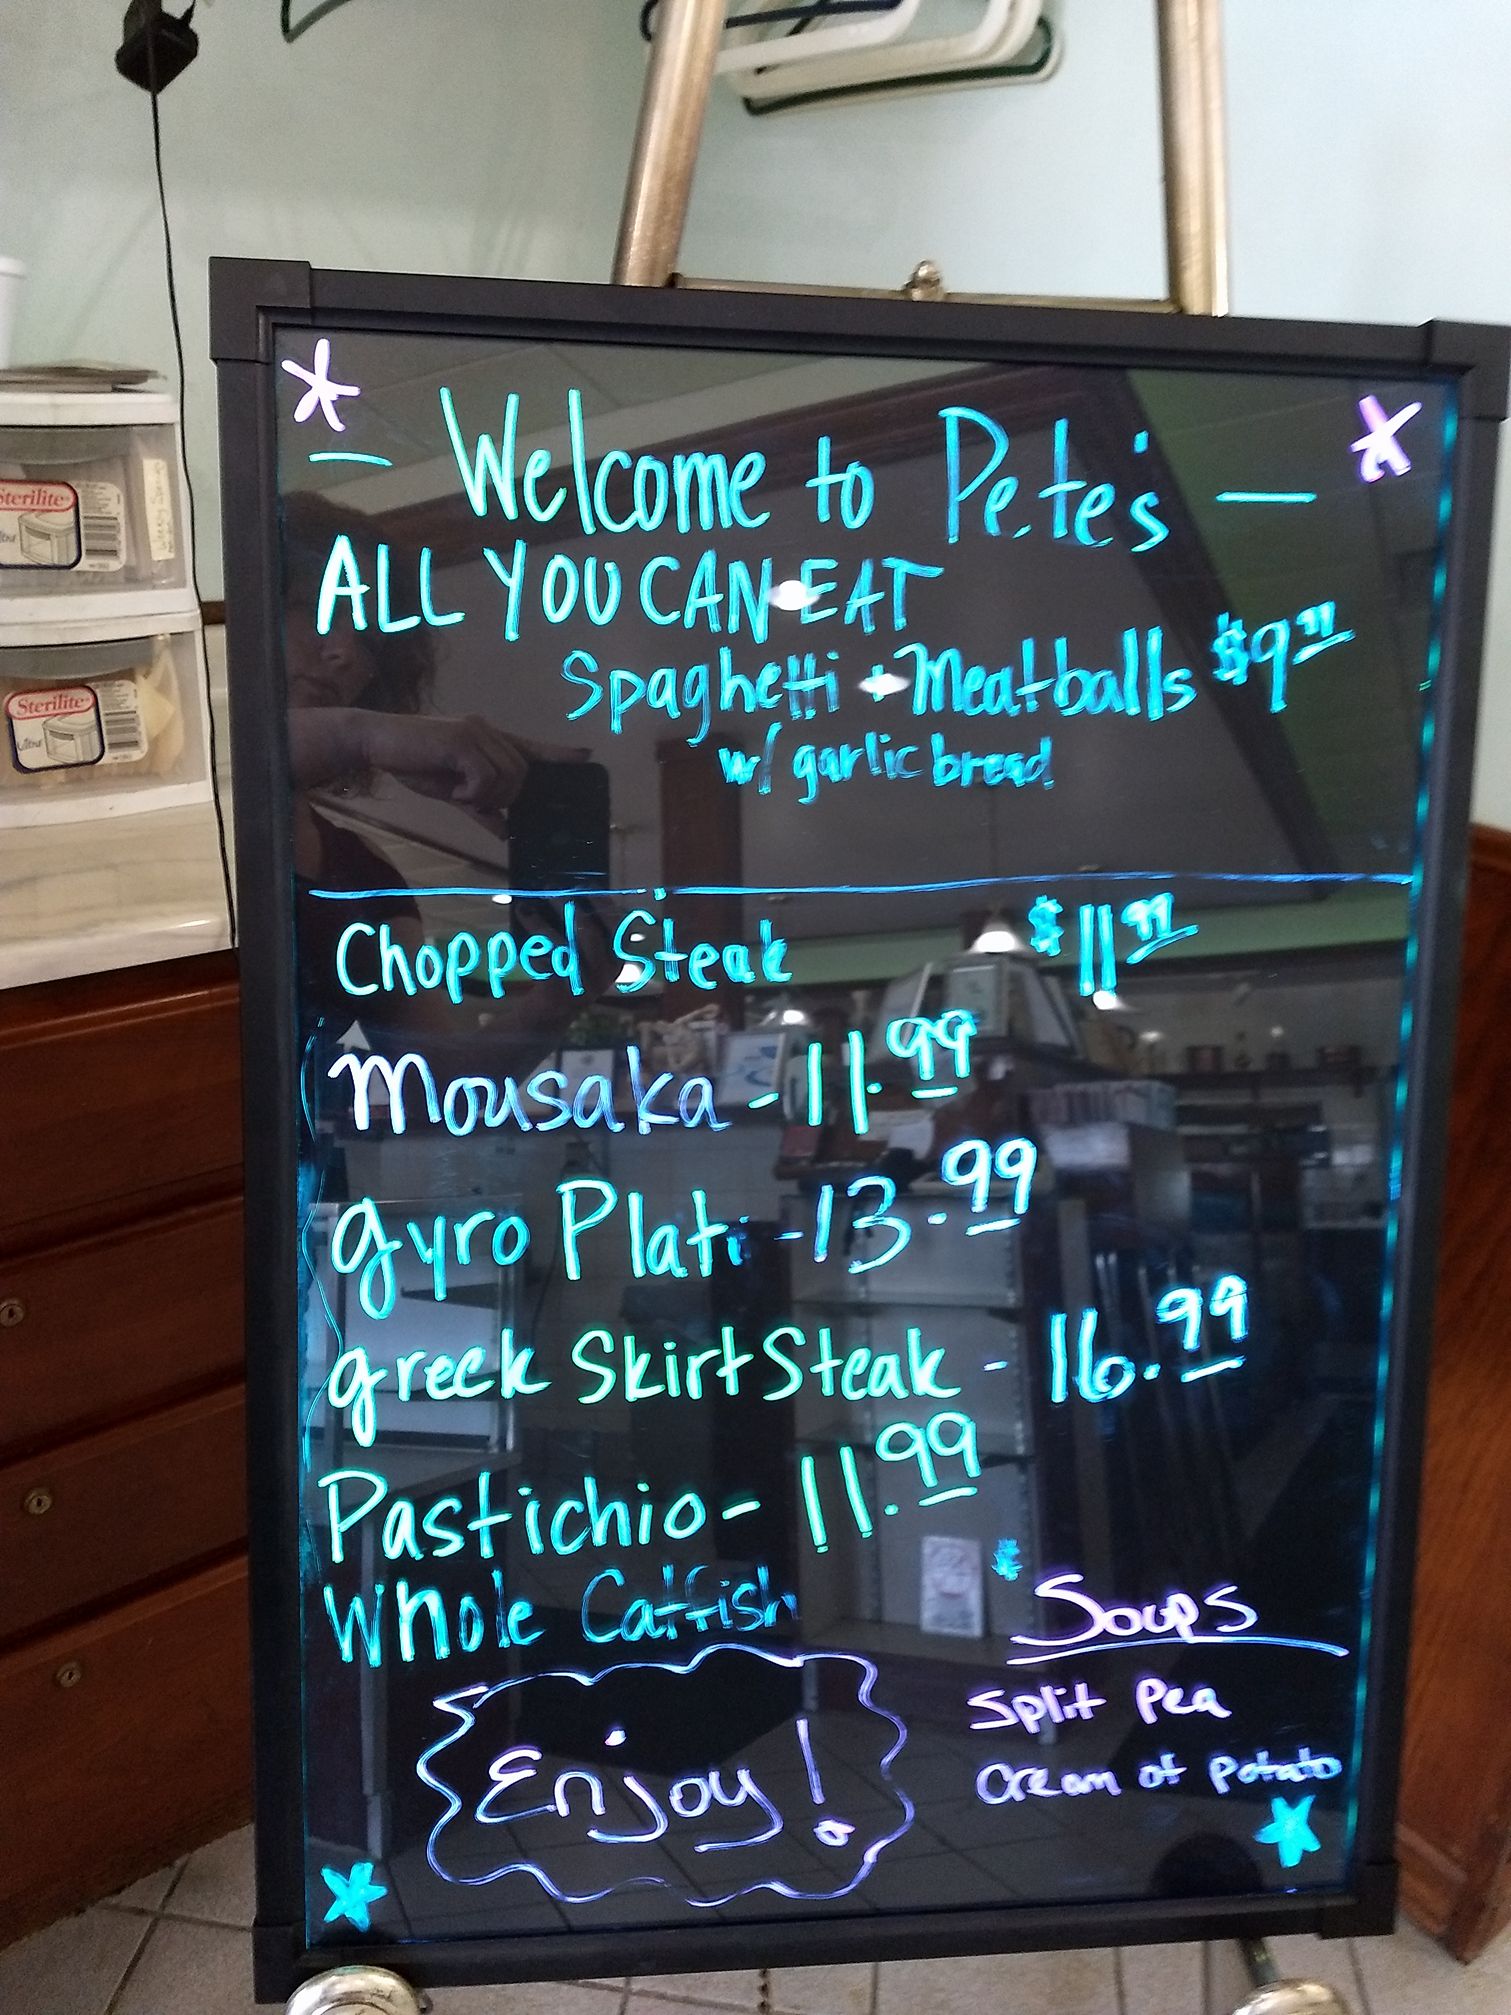 Sterilite
Ultra
Sterilite
Ultra
Welcome to Pete's
ALL YOU CAN EAT
Spaghetti + Meatballs $9.99
w/ garlic bread
Chopped Steak $11.99
Mousaka - 11.99
gyro Plat - 13.99
greek Skirt Steak - 16.99
Pastichio - 11.99
Whole Catfish $
Enjoy!
Soups
Split Pea
Cream of Potato